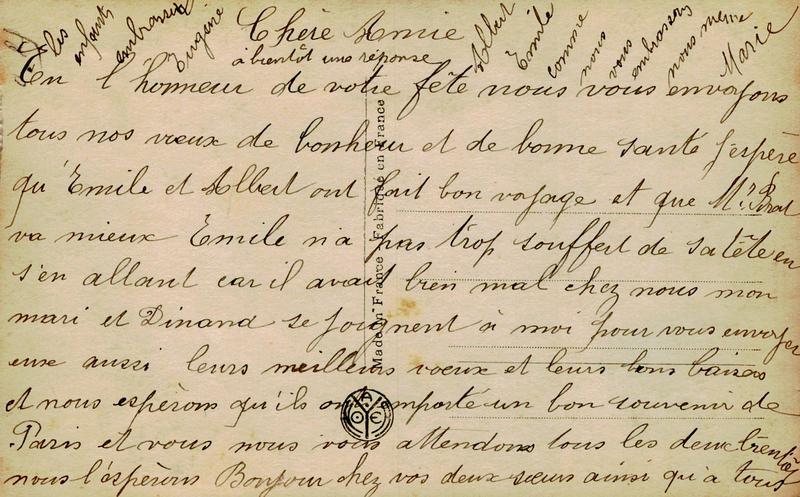 Chère Amie
à bientôt une réponse
En l'honneur de votre fête nous vous envoyons
tous nos vœux de bonheur et de bonne santé j'espère
qu'Emile et Albert ont fait bon voyage et que Mr
va mieux Emile n'a pas trop souffert de sa tête en
s'en allant car il avait bien mal chez nous mon
mari et Dinand se joignent à moi pour vous envoyer
eux aussi leurs meilleurs vœux et leurs bons baisers
et nous espèrons qu'ils ont emporté un bon souvenir de
Paris et vous nous vous attendons tous les deux bientôt
nous l'espèrons Bonjour chez vos deux sœurs ainsi qu'à tous
les
enfants
embrassux
Eugène
Albert
Emile
comme
nous
vous
embrassons
nous meme
Marie
Made in France Fabriqué en France